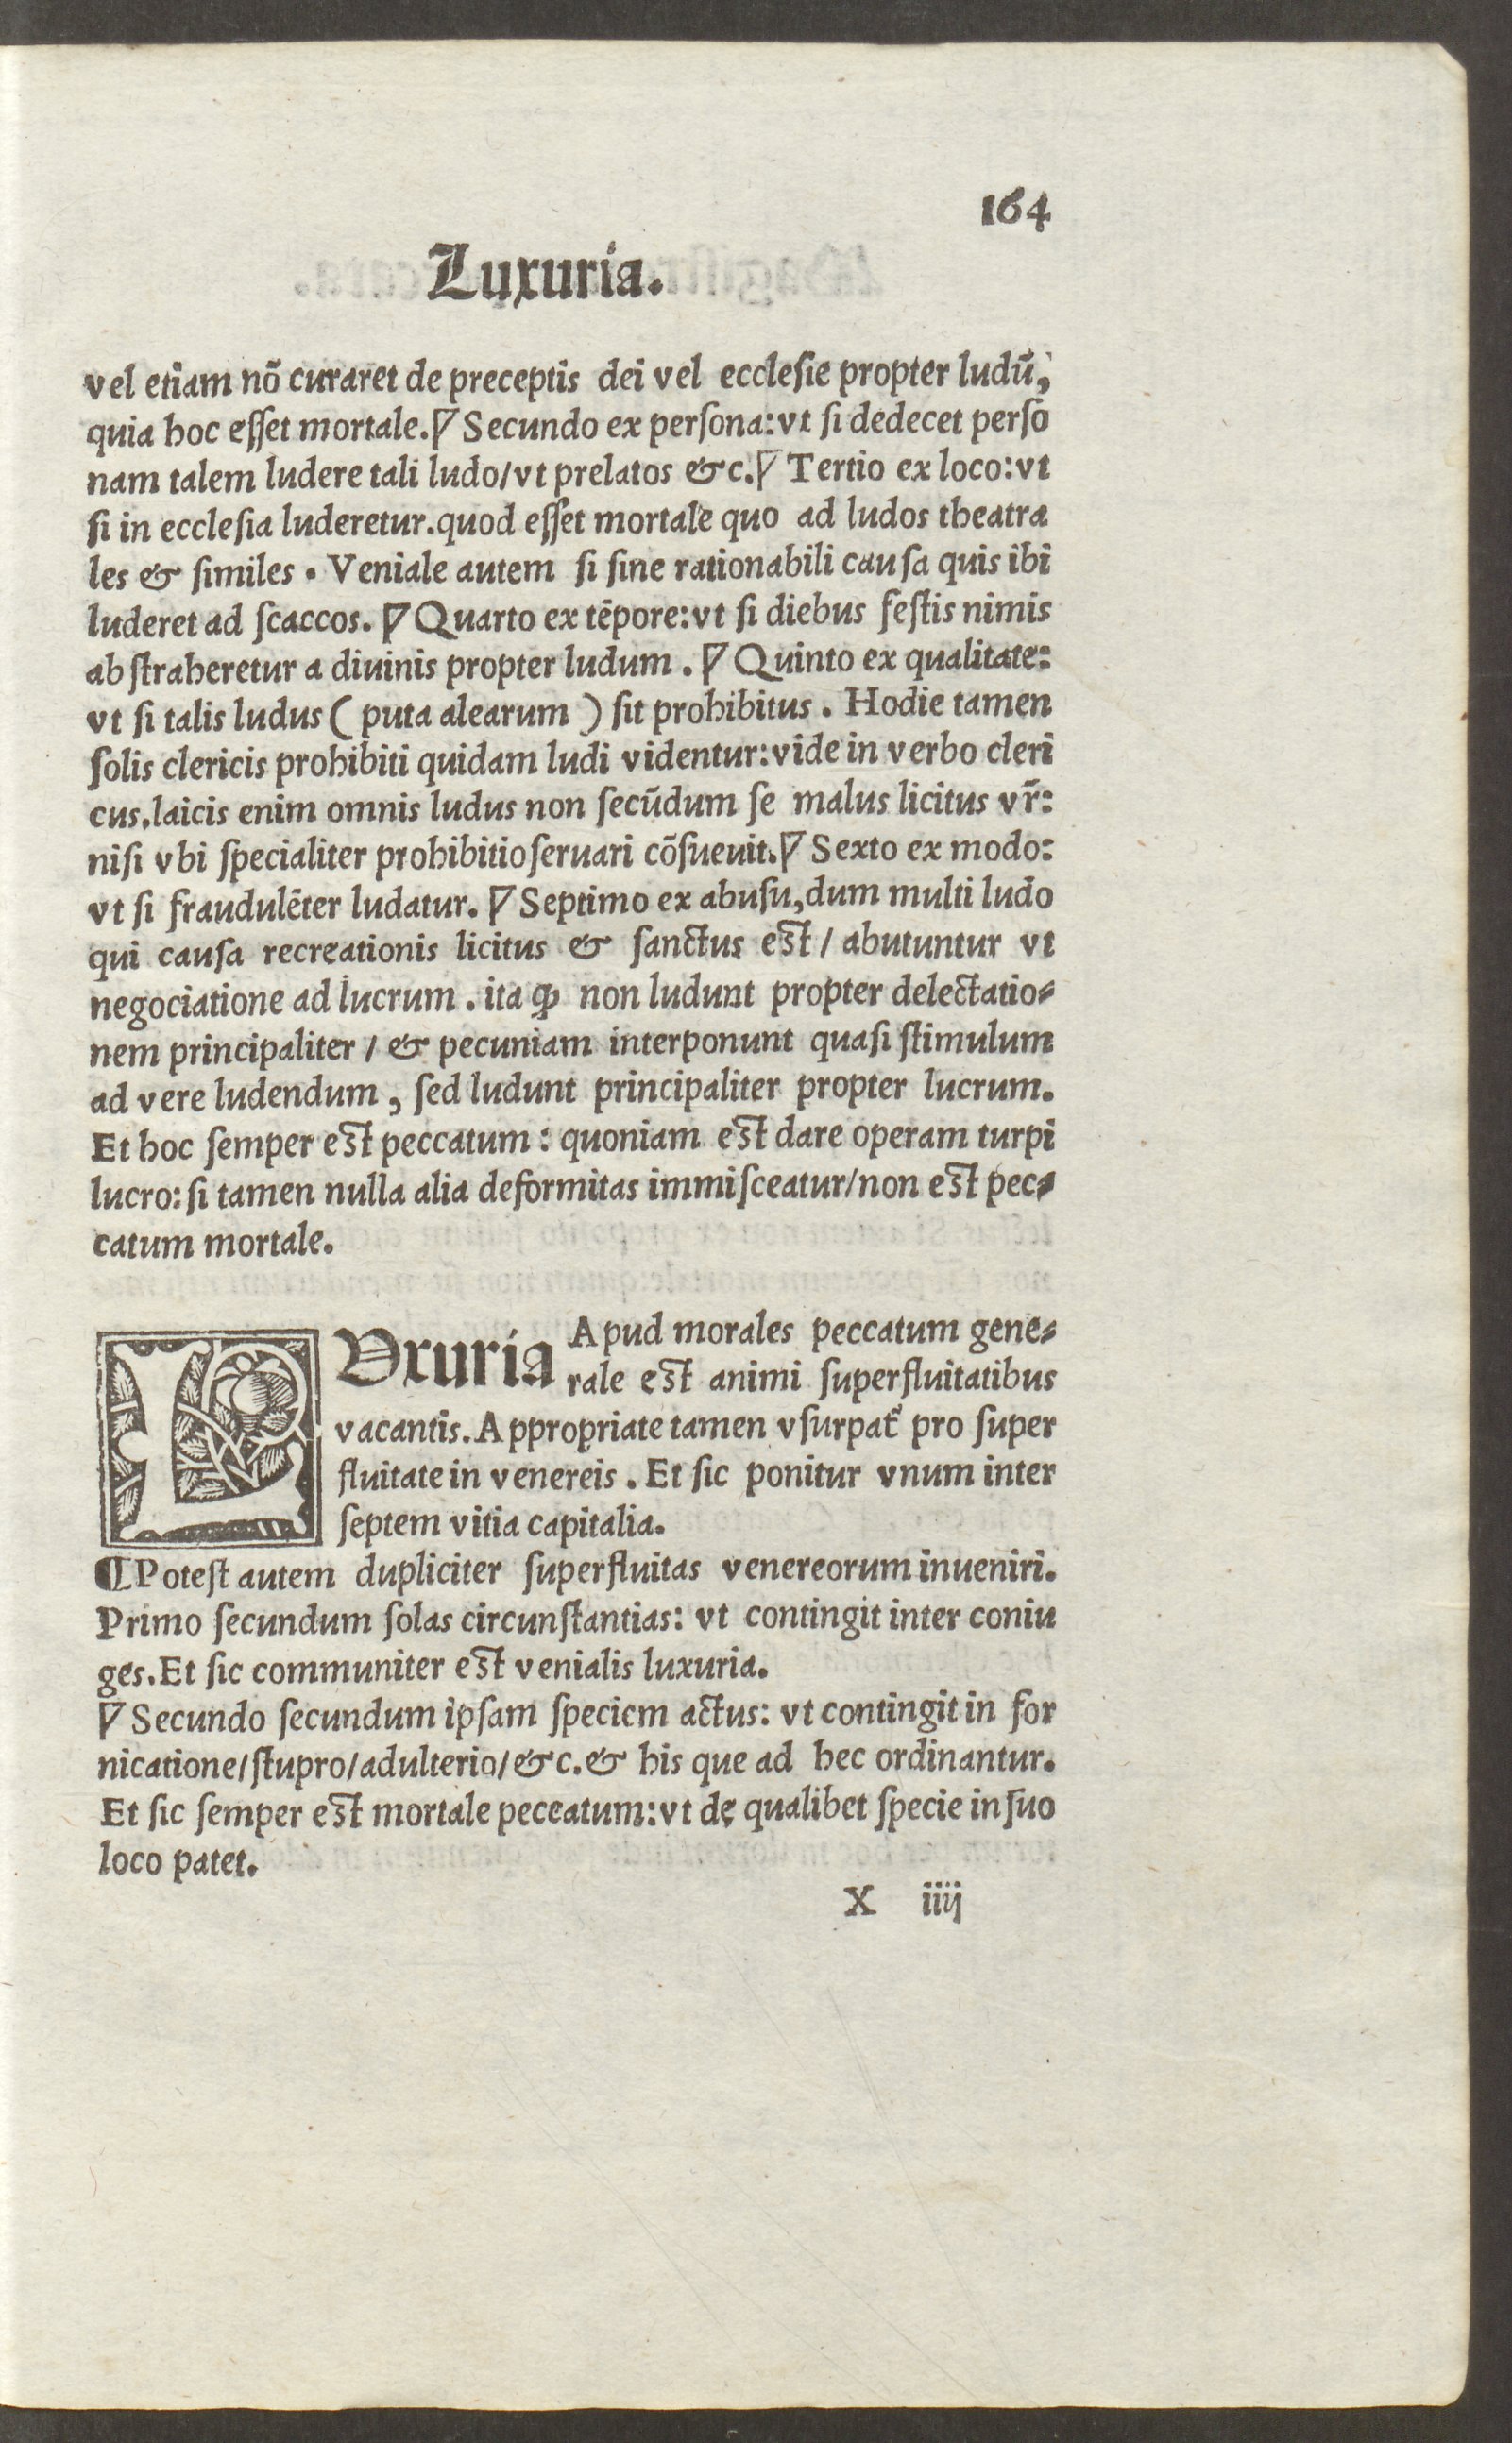 164
Luxuria.
vel etiam nō curaret de preceptis dei vel eccleſie propter ludū,
quia hoc eſſet mortale.⁋ Secundo ex perſona:vt ſi dedecet perſo
nam talem ludere tali ludo/vt prelatos &c.⁋ Tertio ex loco:vt
ſi in eccleſia luderetur.quod eſſet mortale quo ad ludos theatra
les & ſimiles . Veniale autem ſi ſine rationabili cauſa quis ibi
luderet ad ſcaccos. ⁋ Quarto ex tēpore:vt ſi diebus feſtis nimis
abſtraheretur a diuinis propter ludum . ⁋ Quinto ex qualitate:
vt ſi talis ludus ( puta alearum ) ſit prohibitus . Hodie tamen
ſolis clericis prohibiti quidam ludi videntur:vide in verbo cleri
cus.laicis enim omnis ludus non ſecūdum ſe malus licitus vr̄:
niſi vbi ſpecialiter prohibitio ſeruari cōſueuit.⁋ Sexto ex modo:
vt ſi fraudulēter ludatur. ⁋ Septimo ex abuſu,dum multi ludo
qui cauſa recreationis licitus & ſanctus eſt / abutuntur vt
negociatione ad lucrum . ita ꝙ non ludunt propter delectatio⸗
nem principaliter / & pecuniam interponunt quaſi ſtimulum
ad vere ludendum , ſed ludunt principaliter propter lucrum.
Et hoc ſemper eſt peccatum : quoniam eſt dare operam turpi
lucro: ſi tamen nulla alia deformitas immiſceatur/non eſt pec⸗
catum mortale.
LVxuria Apud morales peccatum gene⸗
rale eſt animi ſuperfluitatibus
vacantis. Appropriate tamen vſurpat᷑ pro ſuper
fluitate in venereis . Et ſic ponitur vnum inter
ſeptem vitia capitalia.
¶Poteſt autem dupliciter ſuperfluitas venereorum inueniri.
Primo ſecundum ſolas circunſtantias: vt contingit inter coniu
ges.Et ſic communiter eſt venialis luxuria.
⁋ Secundo ſecundum ipſam ſpeciem actus: vt contingit in for
nicatione/ſtupro/adulterio/&c.& his que ad hec ordinantur.
Et ſic ſemper eſt mortale peceatum:vt dę qualibet ſpecie in ſuo
loco patet.
X iiij